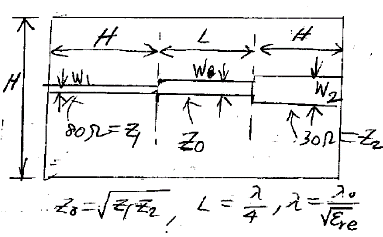 H L H
H W1 W0 W2
80Ω = Z1 Z0 30Ω = Z2
Z0 = √Z1 Z2 , L = λ/4 , λ = λ0/√εre